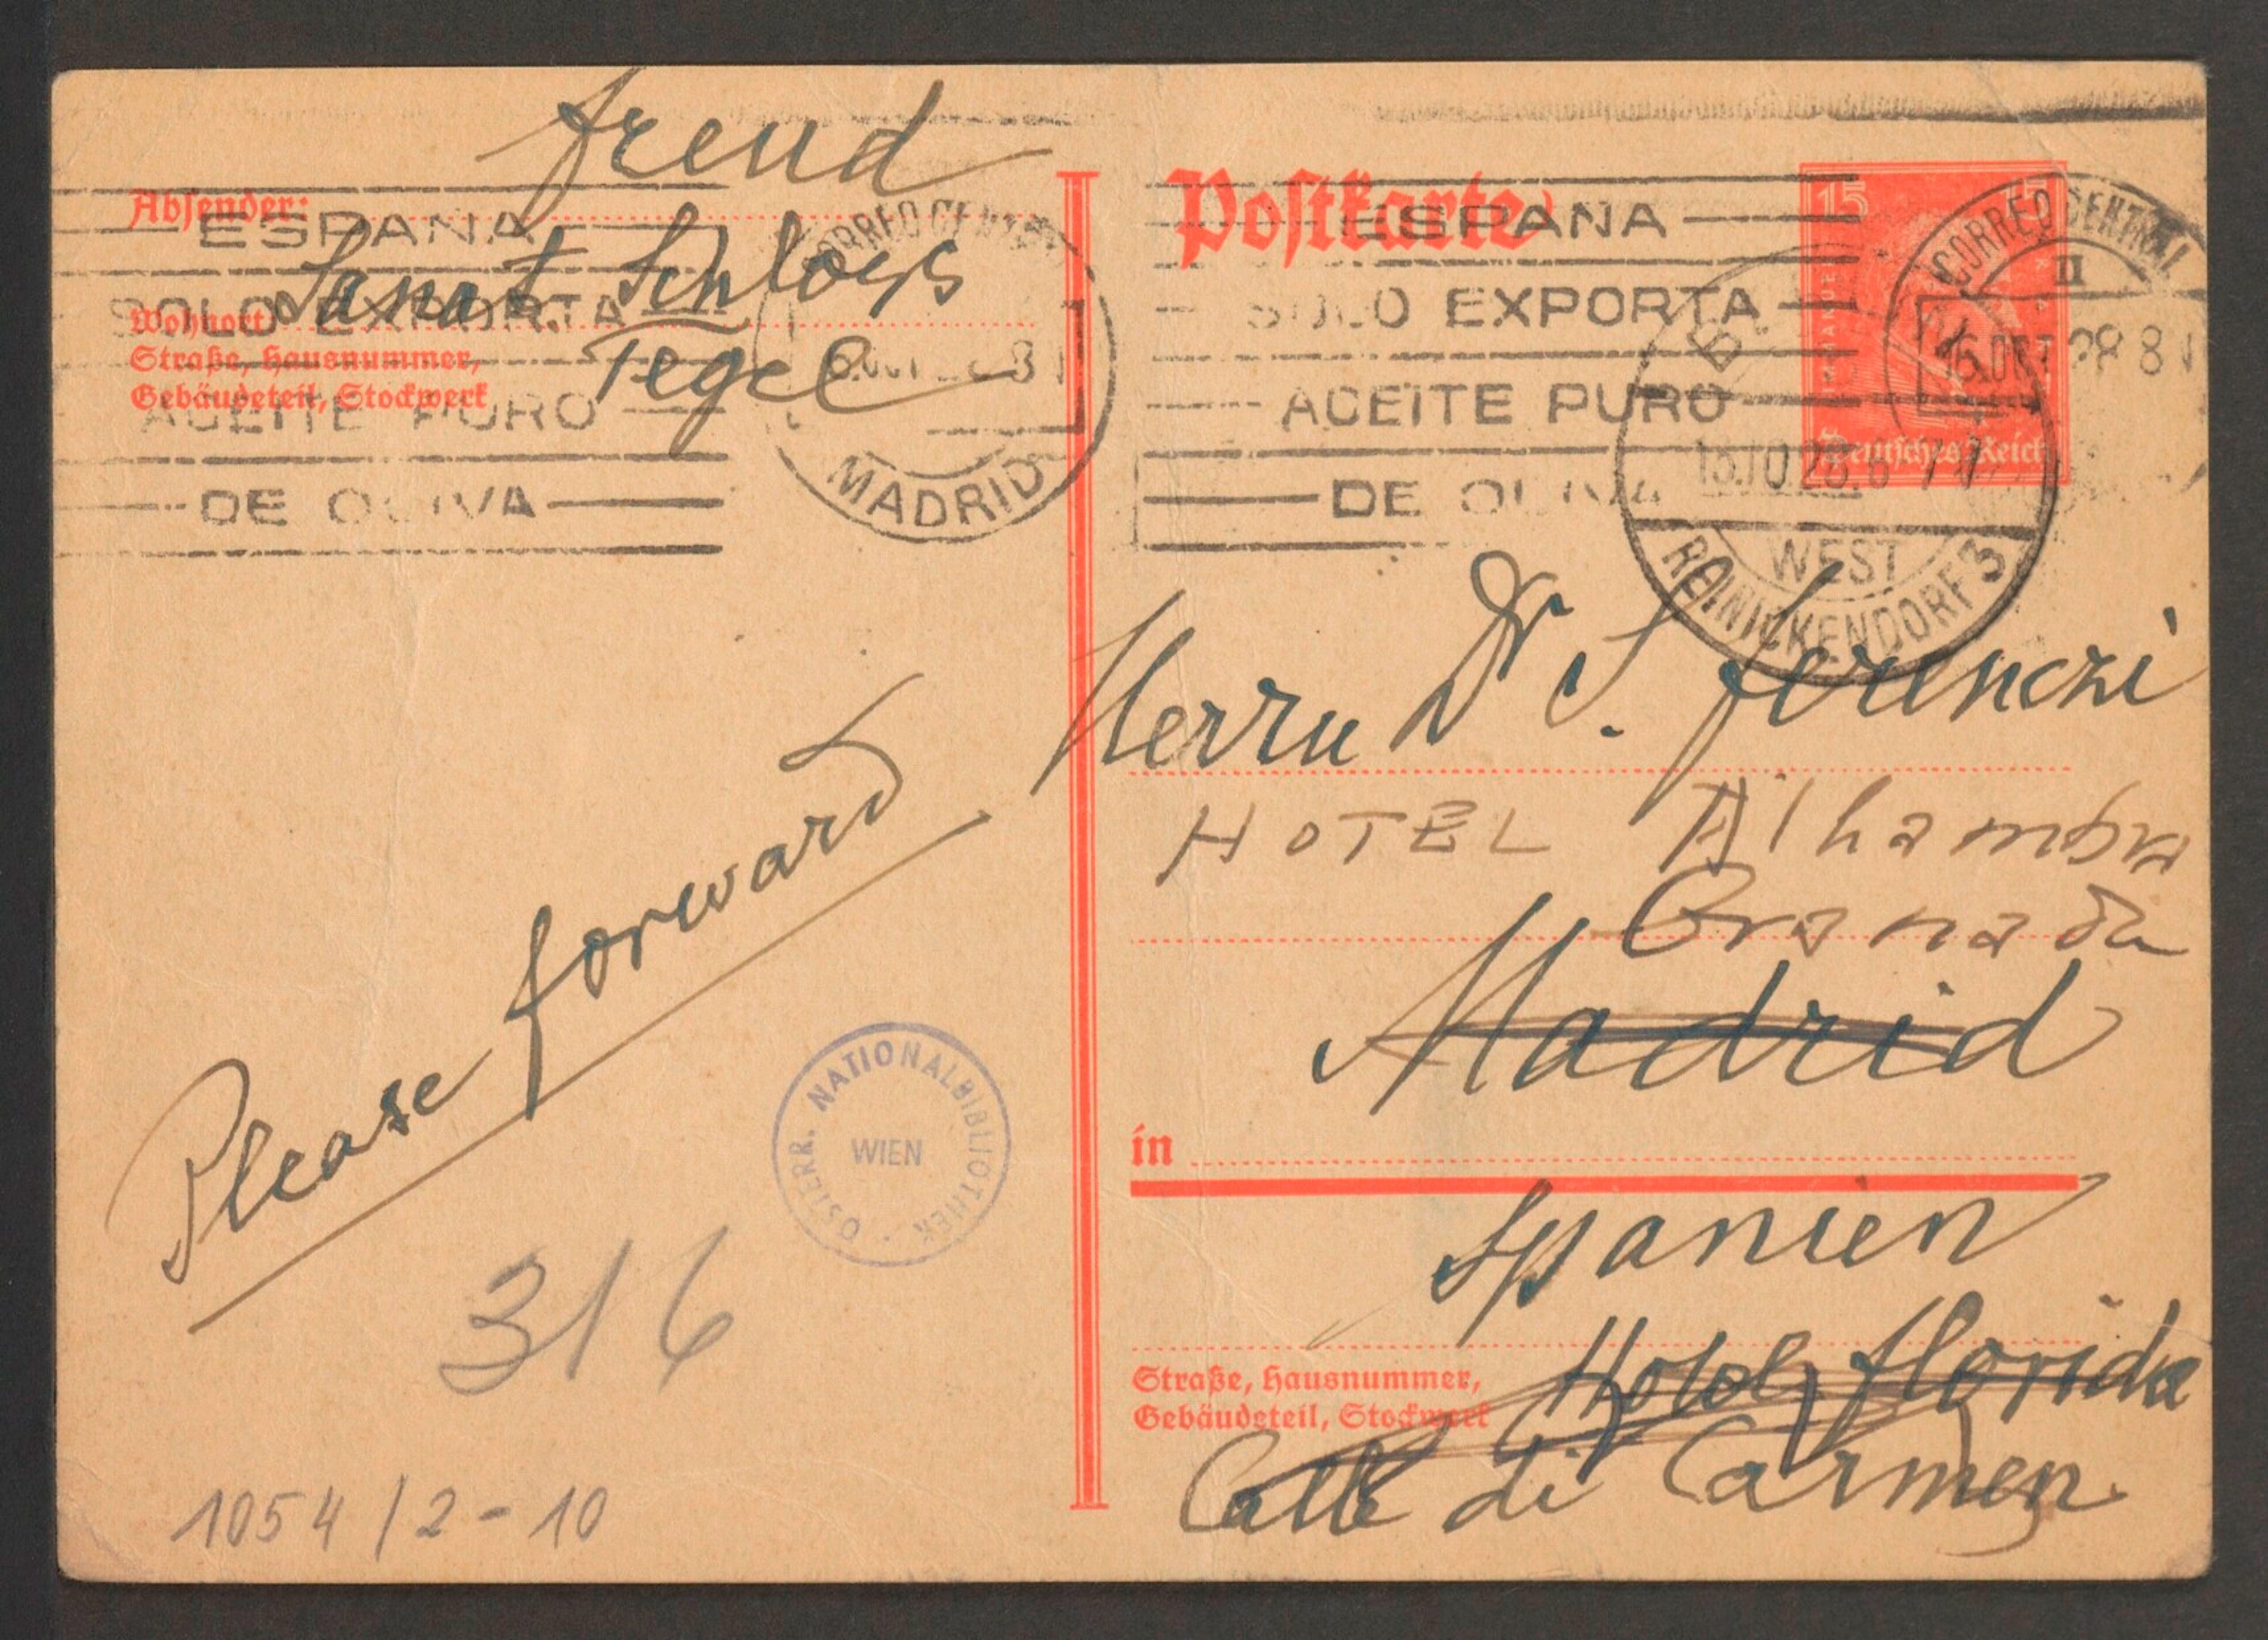 Freud
Absender:
Sanat Schloß
Wohnort
Tegel
Straße, Hausnummer,
Gebäudeteil, Stockwerk
ESPAÑA
SOLO EXPORTA
ACEITE PURO
DE OLIVA
CORREO CENTRAL
MADRID
Please forward
ÖSTERR. NATIONALBIBLIOTHEK
WIEN
316
1054 / 2 - 10
Postkarte
15 15
Deutsches Reich
ESPAÑA
SOLO EXPORTA
ACEITE PURO
DE OLIVA
CORREO CENTRAL
II
16. OKT 28 8
13.10.28.6-7
WEST
REINICKENDORF 3
Herrn Dr S. Ferenczi
HOTEL Alhambra
Granada
Madrid
in
Spanien
Hotel Florida
Straße, Hausnummer,
Gebäudeteil, Stockwerk
Calle di Carmen